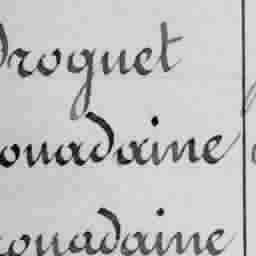 Droguet
ouadaine
ouadaine